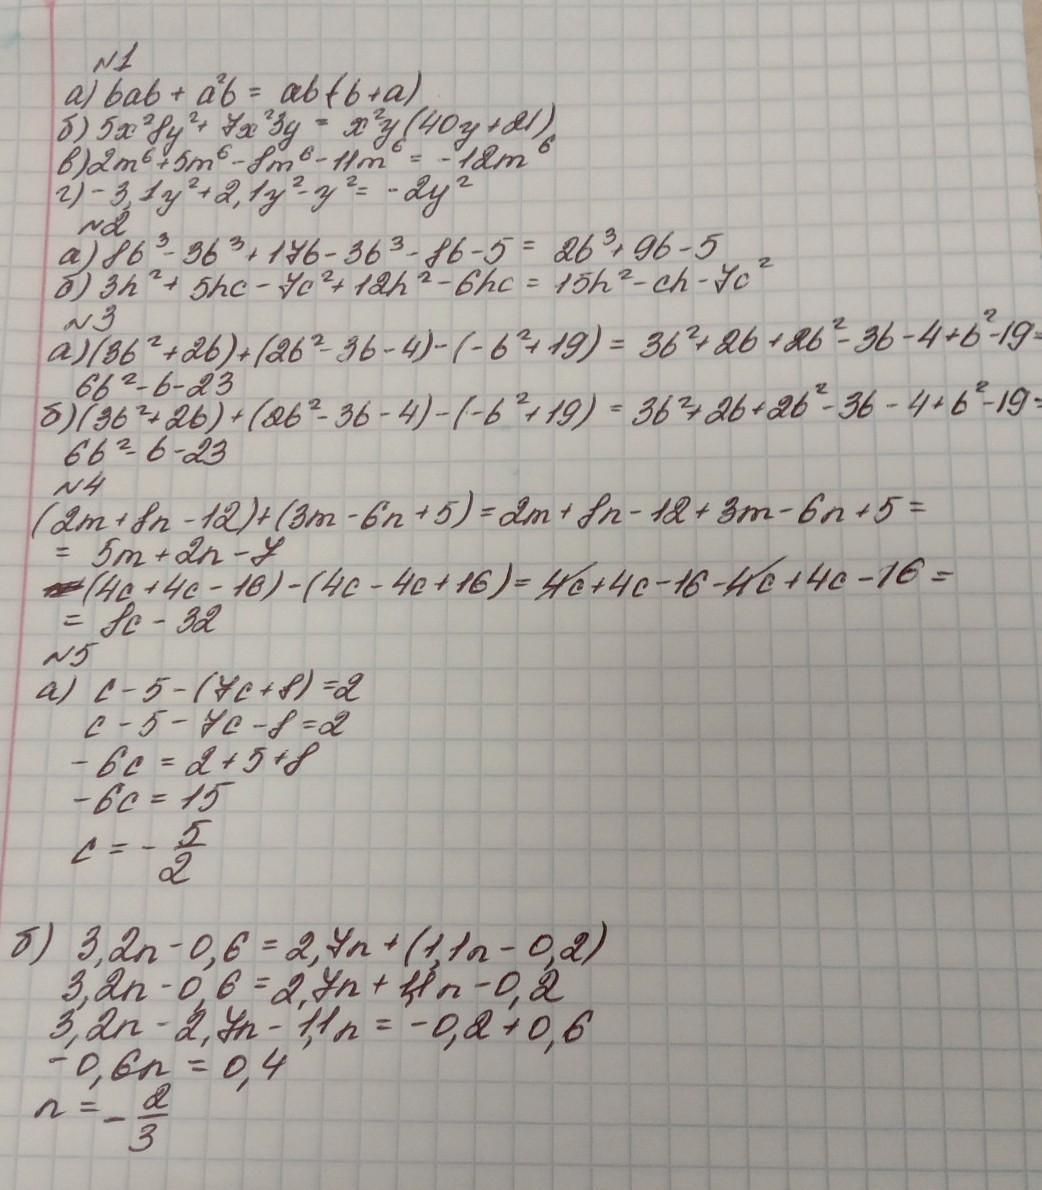 №1
а) bab + a²b = ab (b + a)
б) 5x²8y² + 7x²3y = x²y (40y + 21)
в) 2m⁶ + 5m⁶ - 8m⁶ - 11m⁶ = -12m⁶
г) - 3,1y² + 2,1y² - y² = -2y²
№2
а) 8b³ - 3b³ + 17b - 3b³ - 8b - 5 = 2b³ + 9b - 5
б) 3h² + 5hc - 7c² + 12h² - 6hc = 15h² - ch - 7c²
№3
а) (3b² + 2b) + (2b² - 3b - 4) - (-b² + 19) = 3b² + 2b + 2b² - 3b - 4 + b² - 19 =
6b² - b - 23
б) (3b² + 2b) + (2b² - 3b - 4) - (-b² + 19) = 3b² + 2b + 2b² - 3b - 4 + b² - 19 =
6b² - b - 23
№4
(2m + 8n - 12) + (3m - 6n + 5) = 2m + 8n - 12 + 3m - 6n + 5 =
= 5m + 2n - 7
(4c + 4c - 16) - (4c - 4c + 16) = 4c + 4c - 16 - 4c + 4c - 16 =
= 8c - 32
№5
а) c - 5 - (7c + 8) = 2
c - 5 - 7c - 8 = 2
- 6c = 2 + 5 + 8
- 6c = 15
c = - 5/2
б) 3,2n - 0,6 = 2,7n + (1,1n - 0,2)
3,2n - 0,6 = 2,7n + 1,1n - 0,2
3,2n - 2,7n - 1,1n = -0,2 + 0,6
- 0,6n = 0,4
n = - 2/3